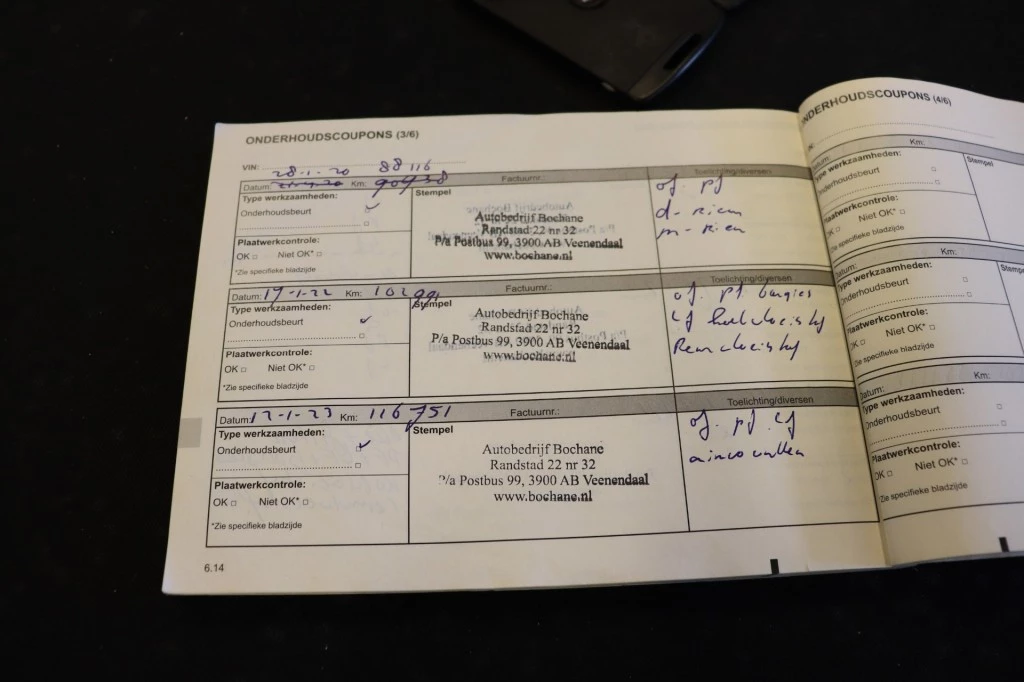 ONDERHOUDSCOUPONS (3/6)
VIN:
28-1-20 88 116
Datum: Km: Factuurnr.: Toelichting/diversen
Type werkzaamheden: Stempel
Onderhoudsbeurt
Plaatwerkcontrole:
OK Niet OK*
*Zie specifieke bladzijde
Autobedrijf Bochane
Randstad 22 nr 32
P/a Postbus 99, 3900 AB Veenendaal
www.bochane.nl
of. pf
d-riem
m-riem
Datum: 17-1-22 Km: Factuurnr.: Toelichting/diversen
Type werkzaamheden: Stempel
Onderhoudsbeurt
Plaatwerkcontrole:
OK Niet OK*
*Zie specifieke bladzijde
Autobedrijf Bochane
Randstad 22 nr 32
P/a Postbus 99, 3900 AB Veenendaal
www.bochane.nl
of. pf bougies
Datum: 12-1-23 Km: 116751 Factuurnr.: Toelichting/diversen
Type werkzaamheden: Stempel
Onderhoudsbeurt
Plaatwerkcontrole:
OK Niet OK*
*Zie specifieke bladzijde
Autobedrijf Bochane
Randstad 22 nr 32
P/a Postbus 99, 3900 AB Veenendaal
www.bochane.nl
of. pf. lf
6.14
ONDERHOUDSCOUPONS (4/6)
Datum: Km:
Type werkzaamheden: Stempel
Onderhoudsbeurt
Plaatwerkcontrole:
OK Niet OK*
*Zie specifieke bladzijde
Datum: Km:
Type werkzaamheden:
Onderhoudsbeurt
Plaatwerkcontrole:
OK Niet OK*
*Zie specifieke bladzijde
Datum: Km:
Type werkzaamheden:
Onderhoudsbeurt
Plaatwerkcontrole:
OK Niet OK*
*Zie specifieke bladzijde